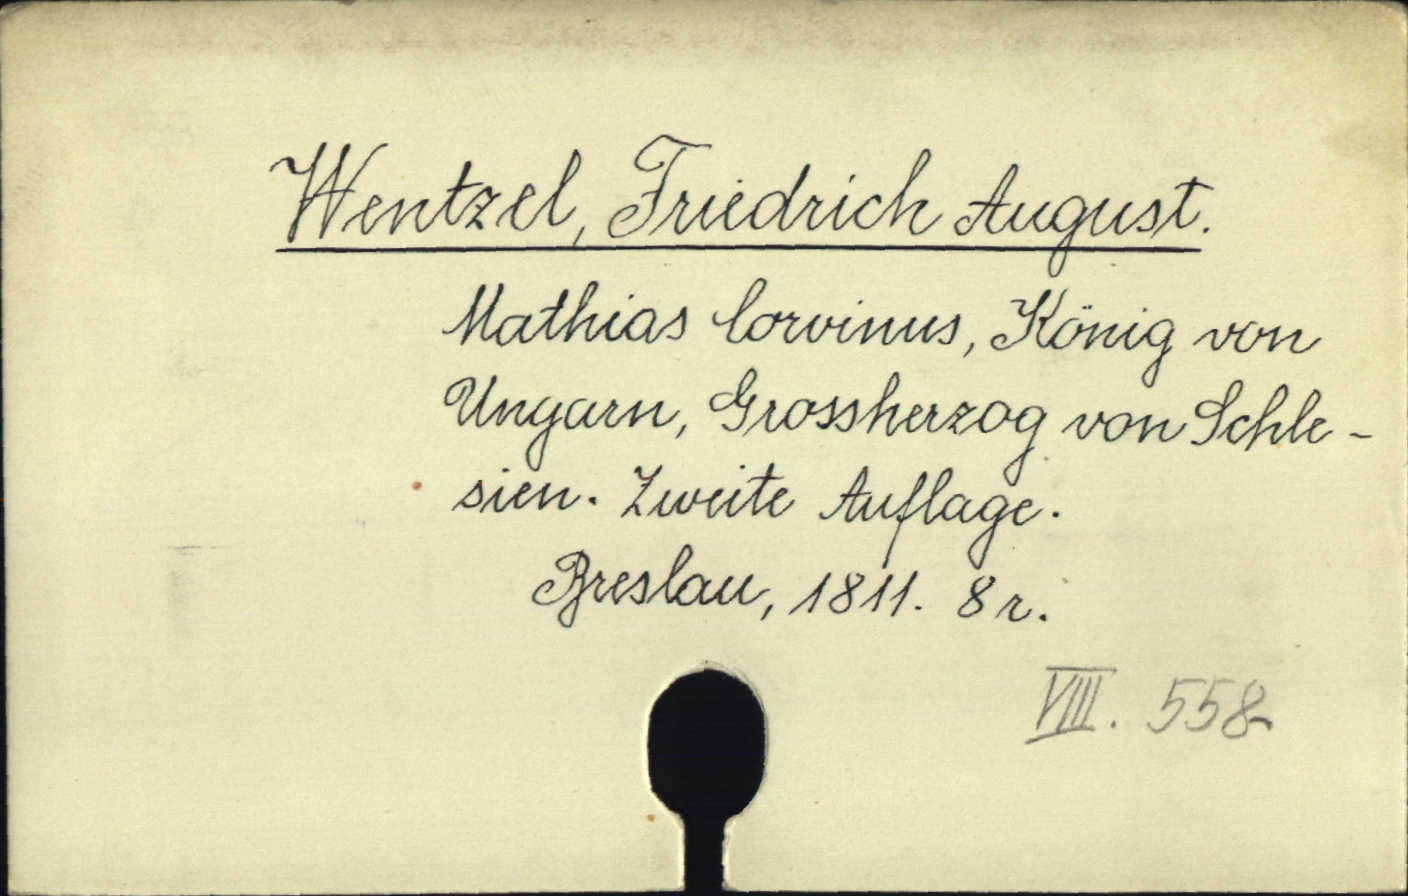 Wentzel, Friedrich August.
Mathias Corvinus, König von
Ungarn, Grossherzog von Schle-
sien. Zweite Auflage.
Breslau, 1811. 8r.
VIII. 558